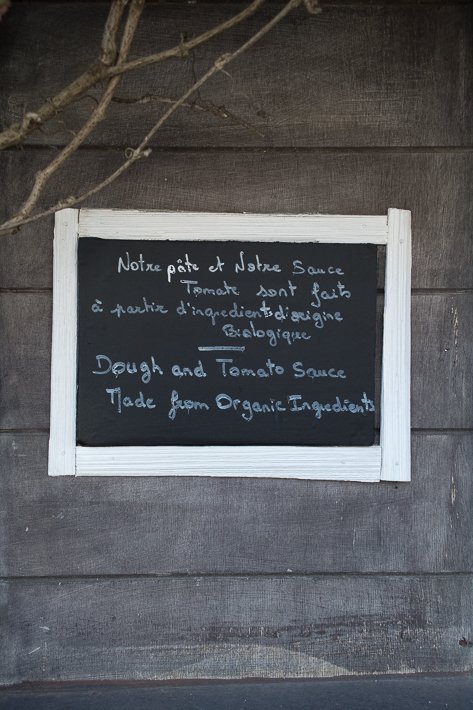 Notre pâte et Notre Sauce
Tomate sont faits
à partir d'ingredients d'origine
Biologique
Dough and Tomato Sauce
Made from Organic Ingredients